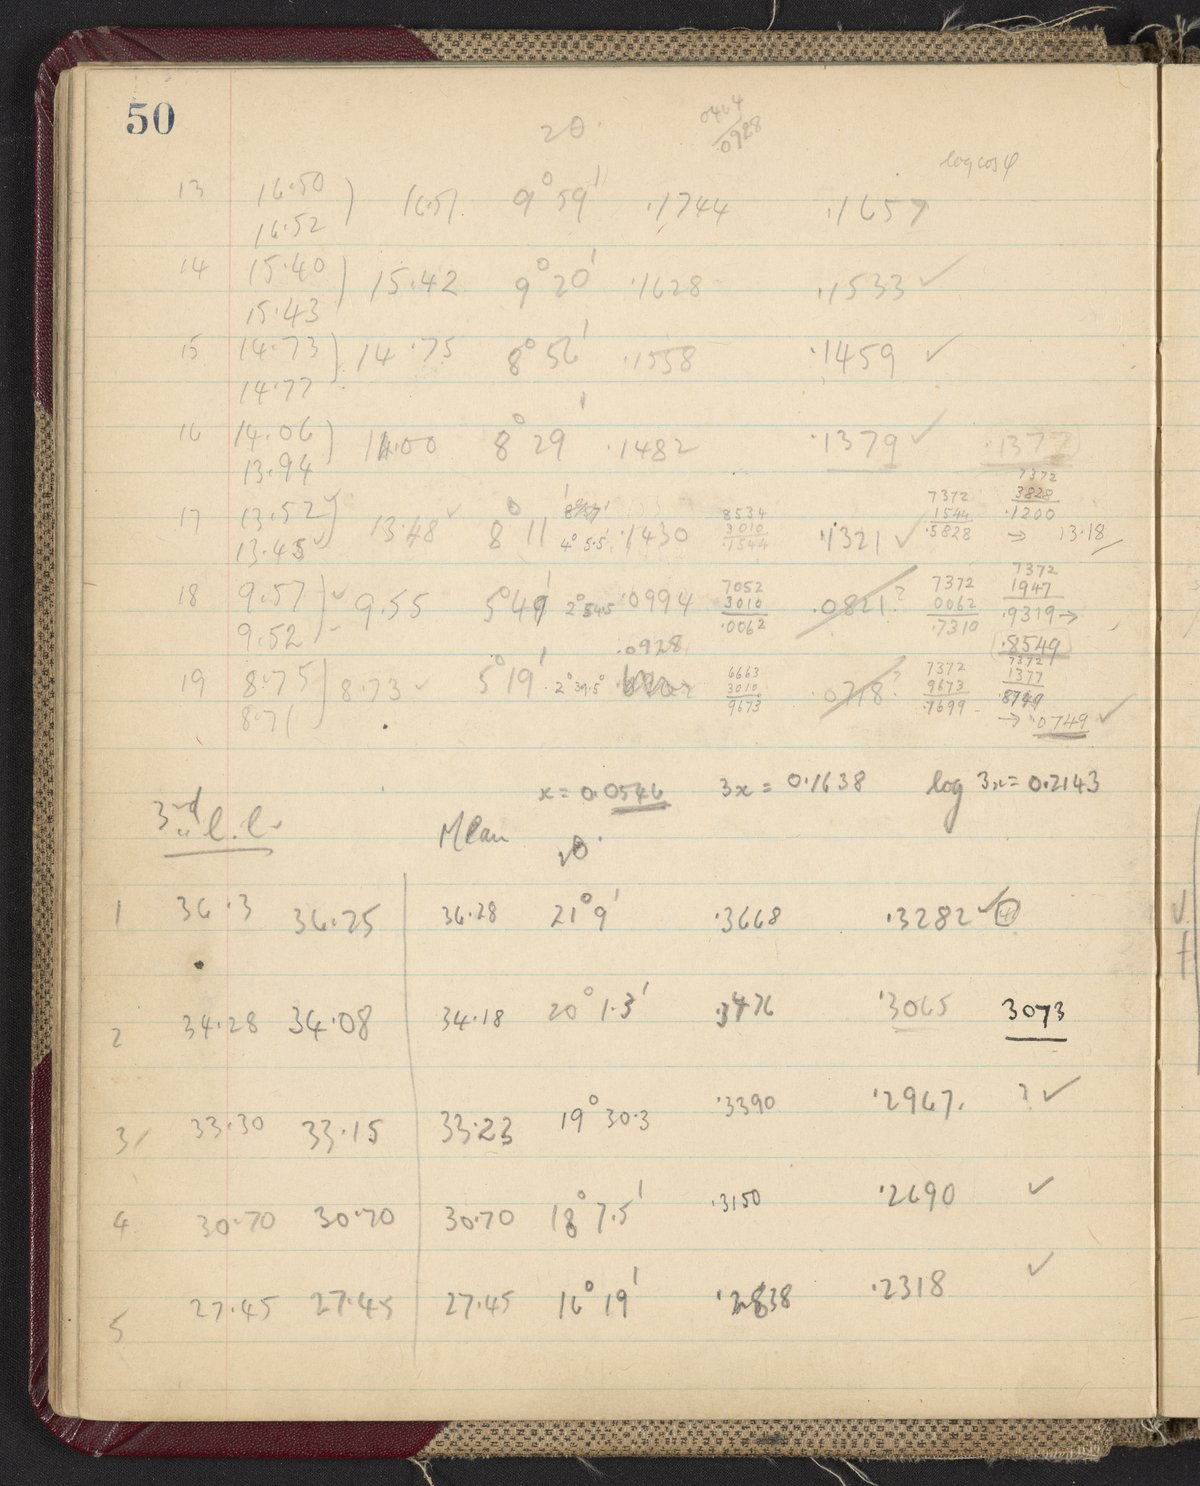 50
2θ .0464
.0928
log cos φ
13 16.50 ) 16.51 9° 59' .1744 .1657
16.52
14 15.40 ) 15.42 9° 20' .1628 .1533 ✓
15.43
15 14.73 ) 14.75 8° 56' .1558 .1459 ✓
14.77
16 14.06 ) 14.00 8° 29' .1482 .1379 ✓ .1377
13.94
17 13.52 ) 13.48 ✓ 8° 11' 4° 5.5' .1430 8534 .1321 ✓ 7372 7372
13.45 3010 1544 3828
.1544 .5828 .1200
→ 13.18
18 9.57 ) ✓ 9.55 5° 49' 2° 54.5 .0994 7052 .0821? 7372 7372
9.52 3010 0062 1947
.0062 .7310 .9319 →
.8549
.0928
19 8.75 ) 8.73 ✓ 5° 19' 2° 39.5° 6663 .0718? 7372 7372
8.71 3010 9673 1377
9673 .7699 .8749
→ .0749 ✓
x = 0.0546 3x = 0.1638 log 3x = 0.2143
3rd l.l.
Mean 2θ
1 36.3 36.25 36.28 21° 9' .3668 .3282 ✓
2 34.28 34.08 34.18 20° 1.3' .3476 .3065 3073
3 33.30 33.15 33.23 19° 30.3 .3390 .2967. ? ✓
4 30.70 30.70 30.70 18° 7.5' .3150 .2690 ✓
5 27.45 27.45 27.45 16° 19' .2838 .2318 ✓